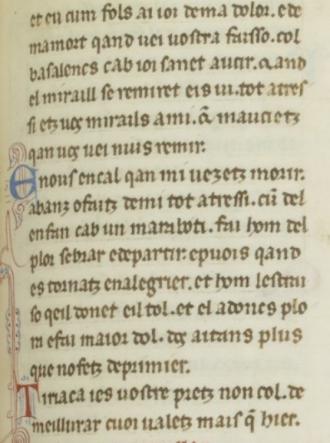 et eu cum fols ai ioi de ma dolor. e de
ma mort qand uei uostra faisso. col
basalencs cab ioi sanet aucir. qand
el miraill se remiret e is ui. tot atres
si etz uos mirails a mi. qe m auciez
qan uos uei ni us remir.
E no us en cal qan mi uezetz morir.
abanz o faitz de mi tot atressi. cū del
enfan cab un maraboti. fai hom del
plor sebrar e departir. e puois qand
es tornatz en alegrier. et hom l estrai
so qeil donet eil tol. et el adoncs plo
ra e fai maior dol. dos aitans plus
que no fetz de primier.
Tmaca ies uostre pretz non col. de
meillurar cuoi ualetz mais q̄ hier.